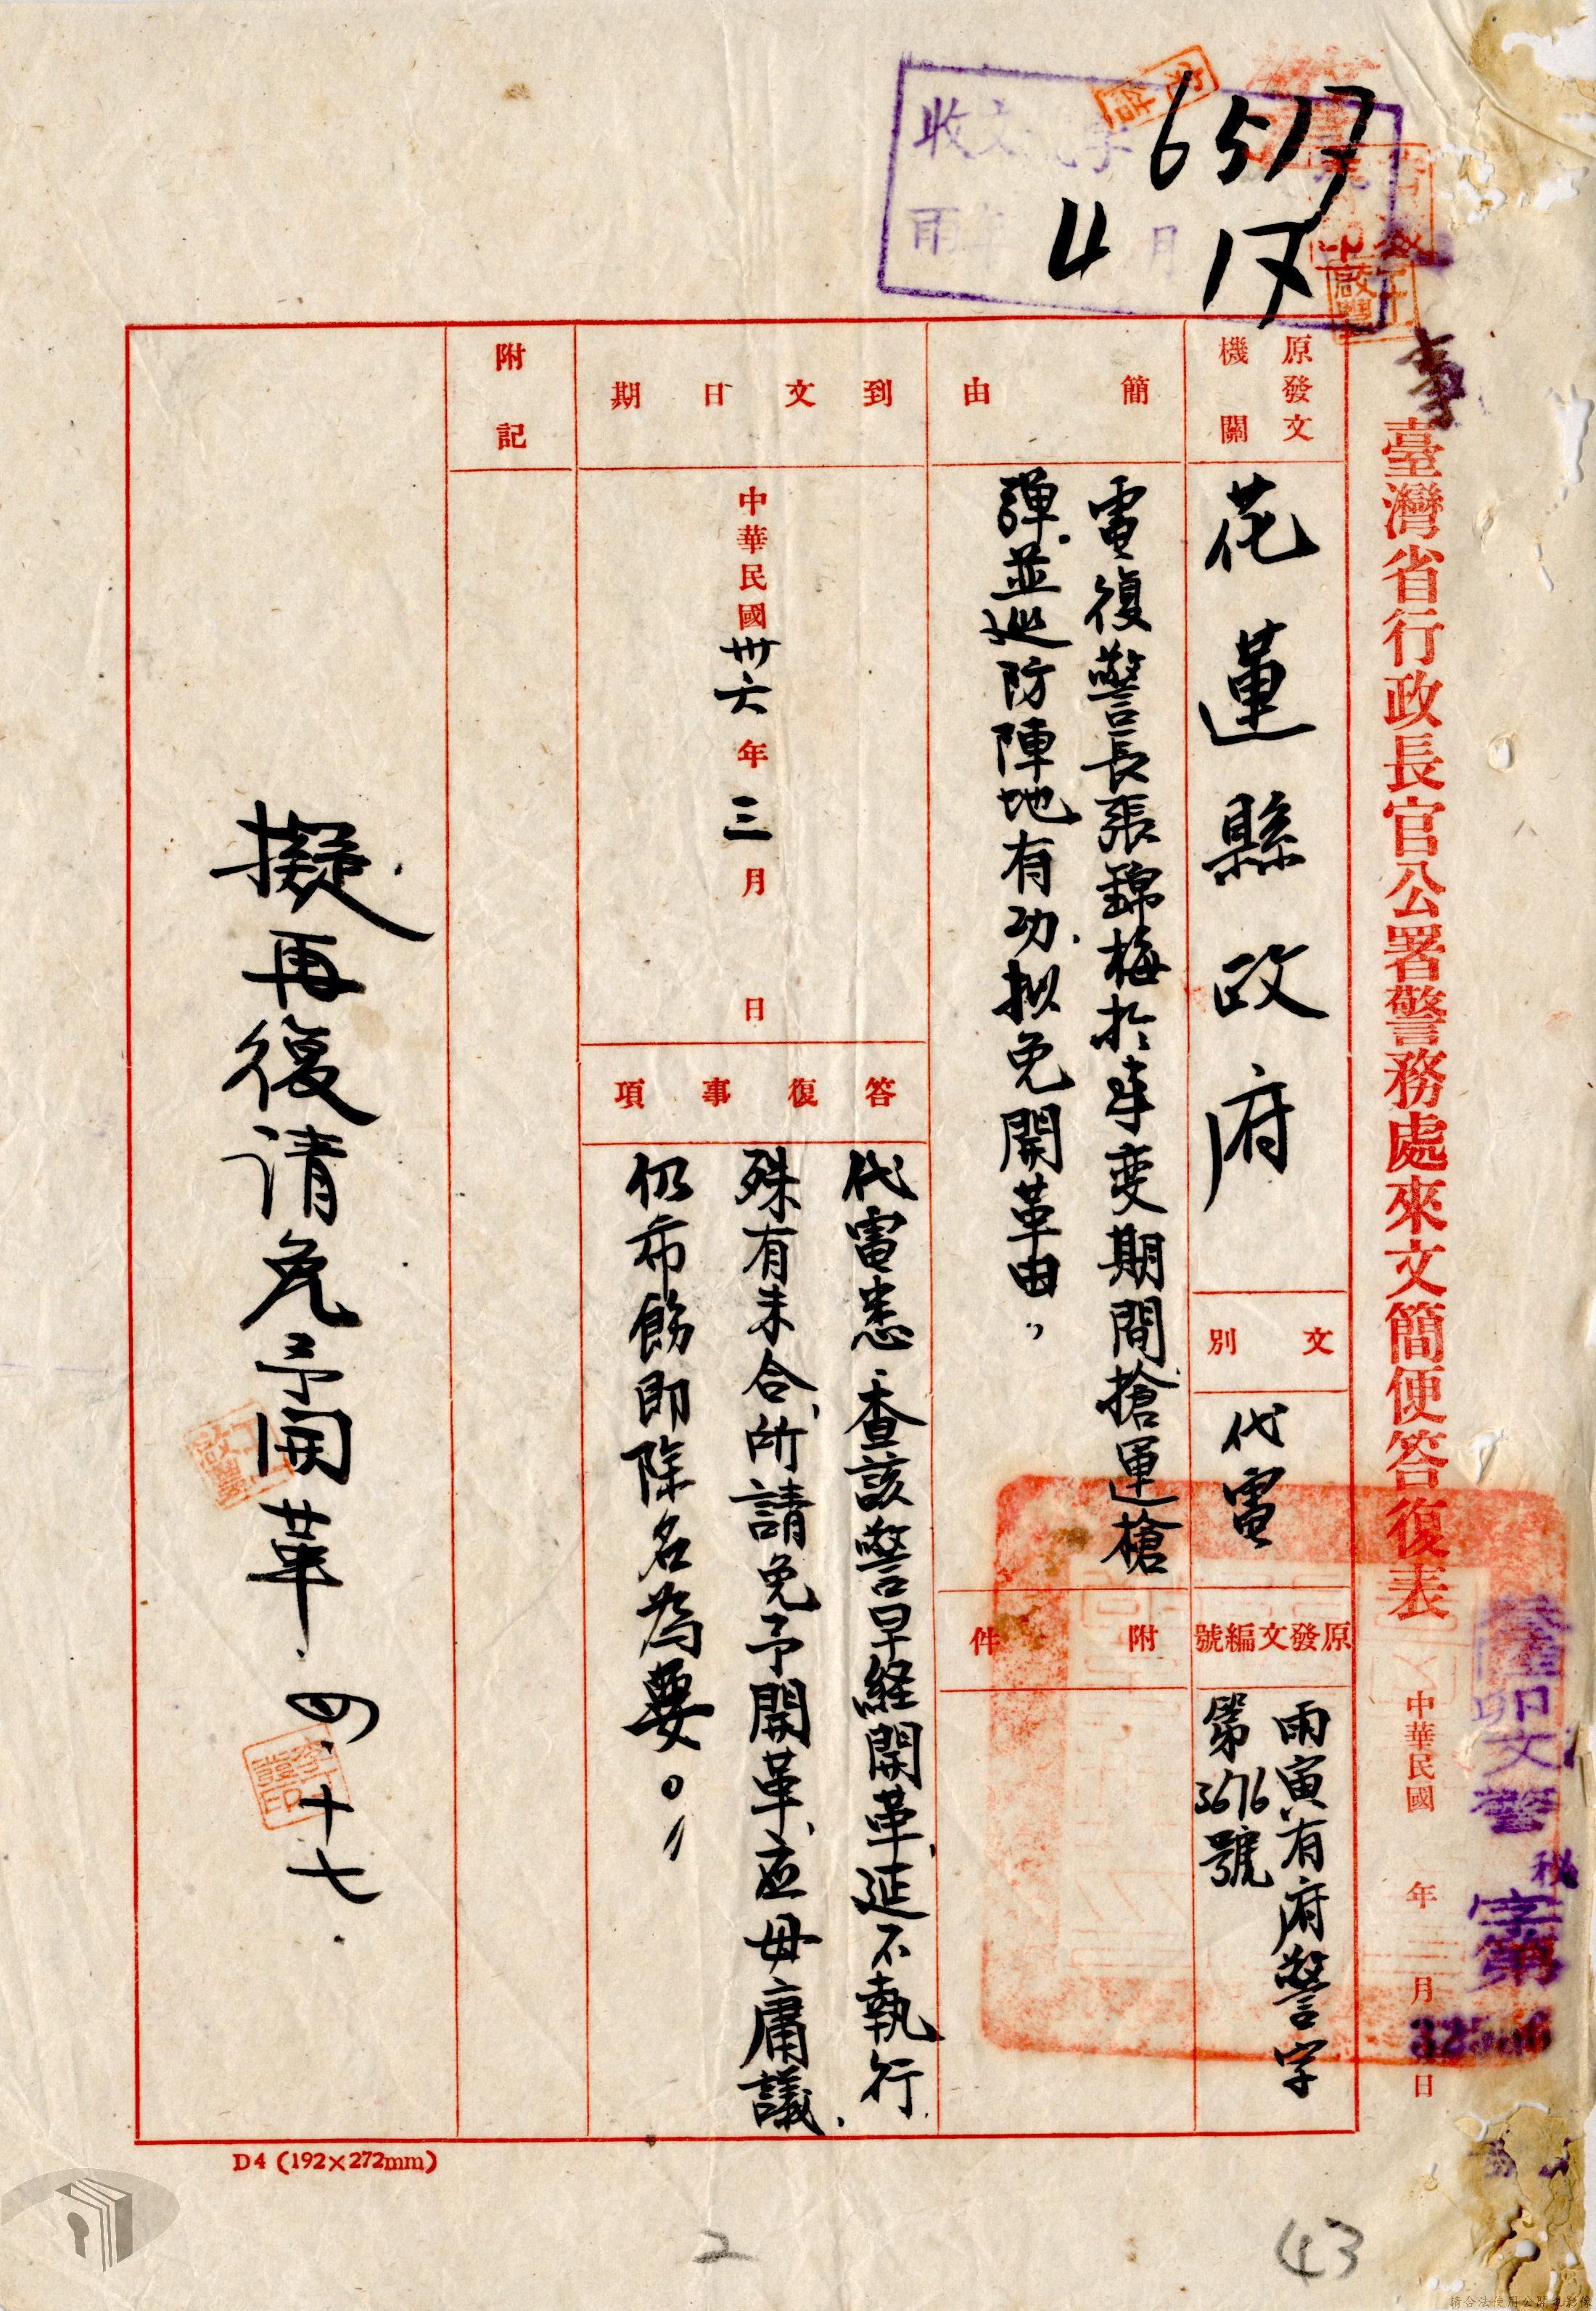 收文 字
6517
雨 4 月 17
臺灣省行政長官公署警務處來文簡便答復表
中華民國 年 月 日
警
秘
字第
原發文
機關
花蓮縣政府
文別
代電
原發文編號
雨寅有府警字
第3676號
簡由
電復警長張錦梅於事變期間搶運槍
彈並巡防陣地有功擬免開革由
附件
到文日期
中華民國卅六年三月 日
答復事項
代電悉查該警早經開革延不執行
殊有未合所請免予開革应毋庸議
仍希飭即除名為要。
附記
擬再復请免予開革 四 十七
D4 (192×272mm)
2
43
請合法使用公開之影像